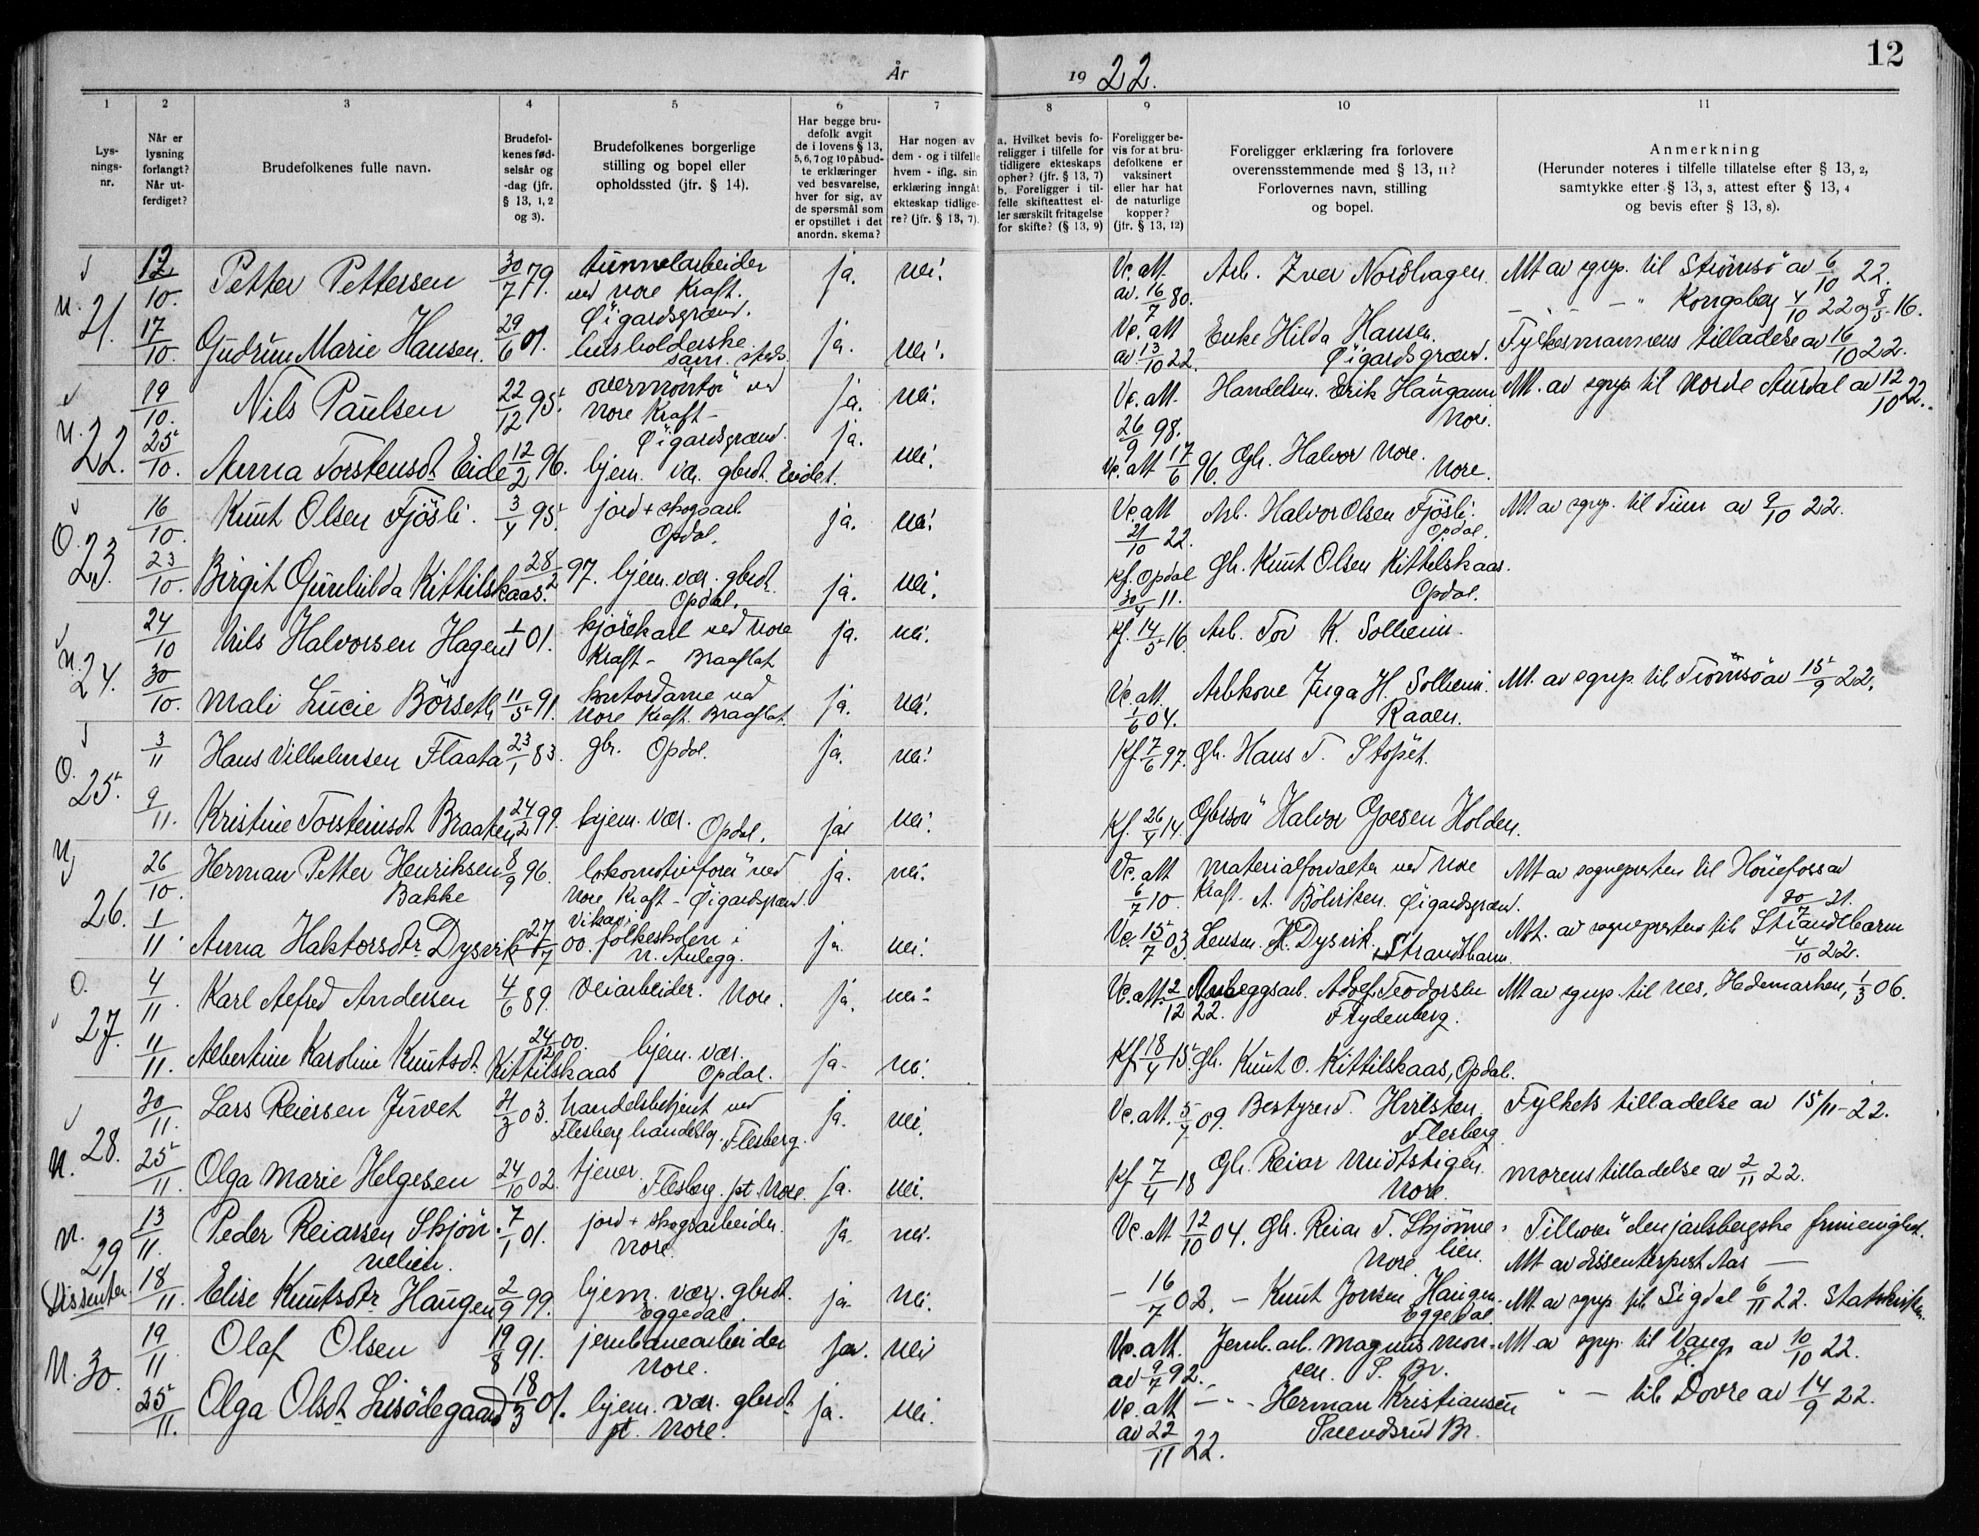 År 19 22.
12
1 2 3 4 5 6 7 8 9 10 11
Lys-
nings-
nr.
Når er
lysning
forlangt?
Når ut-
ferdiget?
Brudefolkenes fulle navn.
Brudefol-
kenes fød-
selsår og
-dag (jfr.
§ 13, 1, 2
og 3).
Brudefolkenes borgerlige
stilling og bopel eller
opholdssted (jfr. § 14).
Har begge bru-
defolk avgit
de i lovens § 13,
5, 6, 7 og 10 påbud-
te erklæringer
ved besvarelse,
hver for sig, av
de spørsmål som
er opstillet i det
anordn. skema?
Har nogen av
dem - og i tilfelle
hvem - iflg. sin
erklæring inngått
ekteskap tidlige-
re? (jfr. § 13, 7).
a. Hvilket bevis fo-
religger i tilfelle for
tidligere ekteskaps
ophør? (jfr. § 13, 7)
b. Foreligger i til-
felle skifteattest el-
ler særskilt fritagelse
for skifte? (§ 13, 9)
Foreligger be-
vis for at bru-
defolkene er
vaksinert
eller har hat
de naturlige
kopper?
(jfr. § 13, 12)
Foreligger erklæring fra forlovere
overensstemmende med § 13, 11?
Forlovernes navn, stilling
og bopel.
Anmerkning
(Herunder noteres i tilfelle tillatelse efter § 13, 2,
samtykke efter § 13, 3, attest efter § 13, 4
og bevis efter § 13, 8).
N. 21. 12/10. Petter Pettersen 30/7 79. tunnelarbeider
ved Nore Kraft.
Öigardsgrænd.
ja. nei. Vc. att.
av 16/7 80.
Arb. Iver Nordhagen. Att av sgnp. til Strömsö av 6/10 22.
— " Kongsberg 4/10 22 og 8/5 16.
17/10. Gudrun Marie Hansen. 29/6 01. husholderske
sam. steds.
ja. nei. Vc. att
av 13/10 22.
Enke Hilda Hansen.
Öigardsgrænd.
Fylkesmannens tilladelse av 16/10 22.
N. 22. 19/10. Nils Paulsen 22/12 95. overmontör ved
Nore Kraft -
Öigardsgrænd.
ja. nei. Vc. att.
26/9 98.
Handelsm. Erik Haugann
Nore.
Att. av sgnp til Nordre Aurdal av 12/10 22.
25/10. Anna Torstensdt Eide 12/2 96. hjem. vær. gbrdt. Eidet. ja. nei. Vc. att 17/6 96. Gbr. Halvor Nore.
Nore.
O. 23. 16/10. Knut Olsen Fjösli. 3/4 95. jord + skogsarb
Opdal.
ja. nei. Vc. att
21/10 22.
Arb. Halvor Olsen Fjösli.
Opdal.
Att av sgnp. til Tinn av 9/10 22.
23/10. Birgit Gunhilda Kittilskaas. 28/2 97. hjem. vær. gbrdt.
Opdal.
ja. nei. Kf. Opdal
30/4 11.
Gbr. Knut Olsen Kittilskaas.
Opdal.
N. 24. 24/10 Nils Halvorsen Hagen 1/1 01. kjörekarl ved Nore
Kraft - Braaflat
ja. nei. Kf. 14/5 16. Arb. Tov K. Solheim.
30/10. Mali Lucie Börseth 11/5 91. kontordame ved
Nore Kraft. Braaflat.
ja. nei. Vc. att.
1/6 04.
Arbkone Inga H. Solheim.
Raaen.
Att. av sgnp. til Tromsö av 15/9 22.
O. 25. 3/11 Hans Vilhelmsen Flaata 23/1 83. gbr. Opdal. ja. nei. Kf 7/6 97. Gbr. Hans T. Stöpet.
9/11. Kristine Torsteinsdt Braaten 24/2 99. hjem. vær. Opdal. ja. nei. Kf. 26/4 14. Gbrsön Halvor Goesen Holden.
N 26. 26/10. Herman Petter Henriksen
Bakke
8/9 96. lokomotivförer ved
Nore Kraft - Öigardsgrænd.
ja. nei. Vc. att
6/7 10.
Materialforvalter ved Nore
Kraft - A. Böhriksen. Öigardsgrænd.
Att av sogneprsten til Hönefoss av
20/7 21.
1/11. Anna Haktorsdtr. Dysvik 27/7 00. Vikar i
folkeskolen i
N. Anlegg.
ja. nei. Vc. 15/7 03. Lensm. H. Dysvik.
Strandbarm.
Att. av sogneprsten til Strandbarm
4/10 22.
O. 27. 4/11. Karl Alfred Andersen 4/6 89. Veiarbeider. Nore. ja. nei. Vc. att. 2/12 22. Anleggsarb. Adolf Teodorsen
Frydenberg.
Att av sgnp. til Nes, Hedemarken, 1/3 06.
11/11. Albertine Karoline Knutsdt.
Kittilskaas
24/2 00. hjem. vær.
Opdal.
ja. nei. Kf 18/4 15. Gbr. Knut O. Kittilskaas, Opdal.
N. 28. 20/11. Lars Reiersen Juvet 21/3 03. handelsbetjent ved
Flesberg handelslag. Flesberg.
ja. nei. Vc. att. 5/7 09. Bestyrer
Flesberg.
Fylkets tilladelse av 15/11-22.
25/11. Olga Marie Helgesen 24/10 02. tjener.
Flesberg. pt Nore.
ja. nei. Kf 7/4 18 Gbr. Reiar Midtstigen.
Nore.
Morens tilladelse av 2/11 22.
N. 29 13/11. Peder Reiarsen Skjön-
nelien.
7/1 01. jord + skogsarbeider.
Nore.
ja. nei. Vc. att 12/10 04. Gbr. Reiar T. Skjönne-
lien. Nore
Tilhörer den jarlsbergske frimenighet.
Att av dissenterprest Aas —
Dissenter. 18/11. Elise Knutsdtr Haugen 2/9 99. hjem. vær. gbrdt.
Eggedal.
ja. nei. — 16/7 02. — Knut Jonsen Haugen.
Eggedal.
Att. av sgnp til Sigdal 6/11 22. Statskirken.
N. 30. 19/11. Olaf Olsen 19/8 91. jernbanearbeider
Nore.
ja. nei Vc. att.
av 9/7 92.
Jernb. arb. Magnus Mon-
sen. S. Br.
Att av sgnp til Vang
H. av 10/10 22.
25/11. Olga Olsdt Lisödegaard 18/3 01. hjem. vær. gbrdt.
pt. Nore.
ja. nei. Vc. att
av 22/11 22.
— " - Herman Kristiansen
Svendsrud Br.
" — til Dovre av 14/9 22.